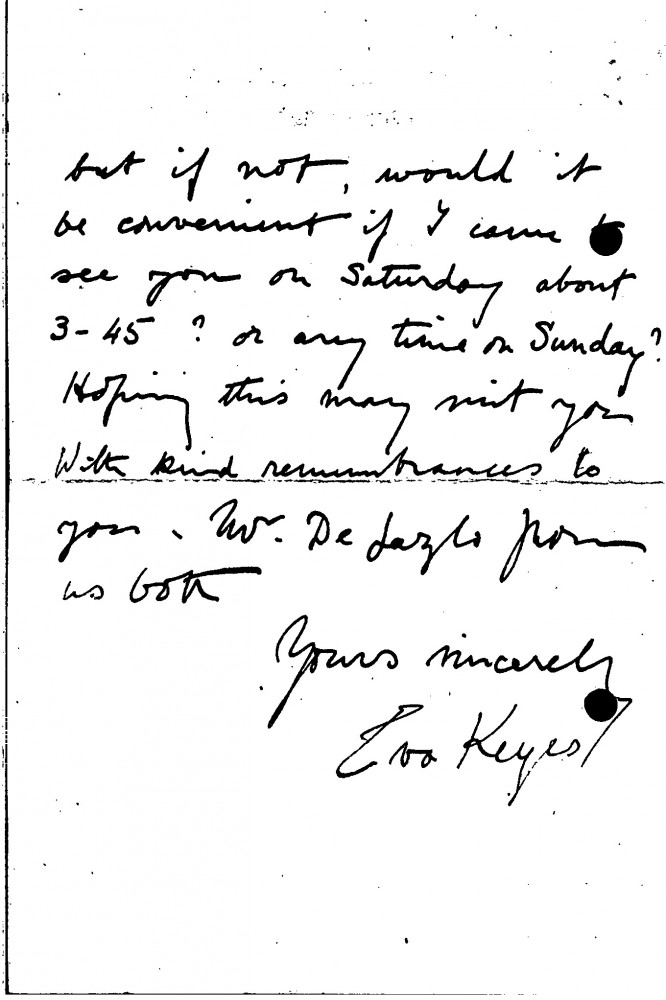 but if not, would it
be convenient if I came to
see you on Saturday about
3-45 ? or any time on Sunday?
Hoping this may suit you
With kind remembrances to
you . Mr. De Lazlo from
us both
Yours sincerely
Eva Keyes